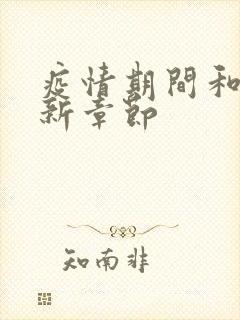 疫情期間和
新章節
知南非